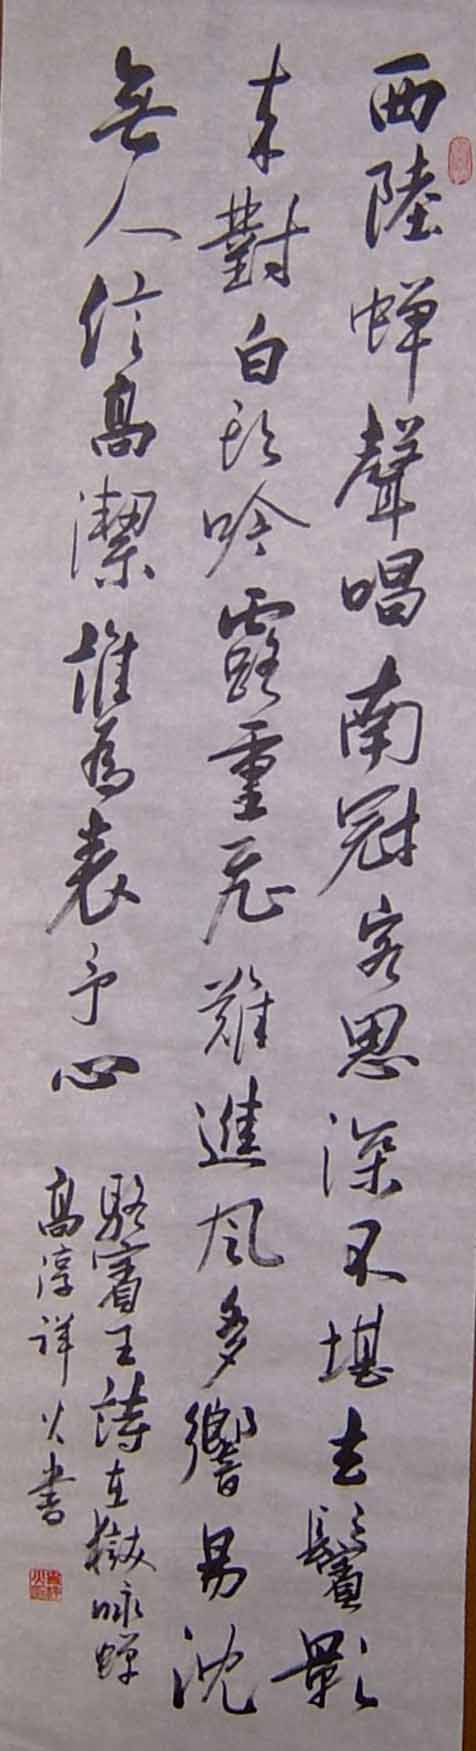 西陸蝉聲唱南冠客思深不堪玄鬢影
来對白頭吟露重飛難進風多響易沈
無人信高潔誰為表予心
駱賓王詩在獄咏蝉
高淳祥火書